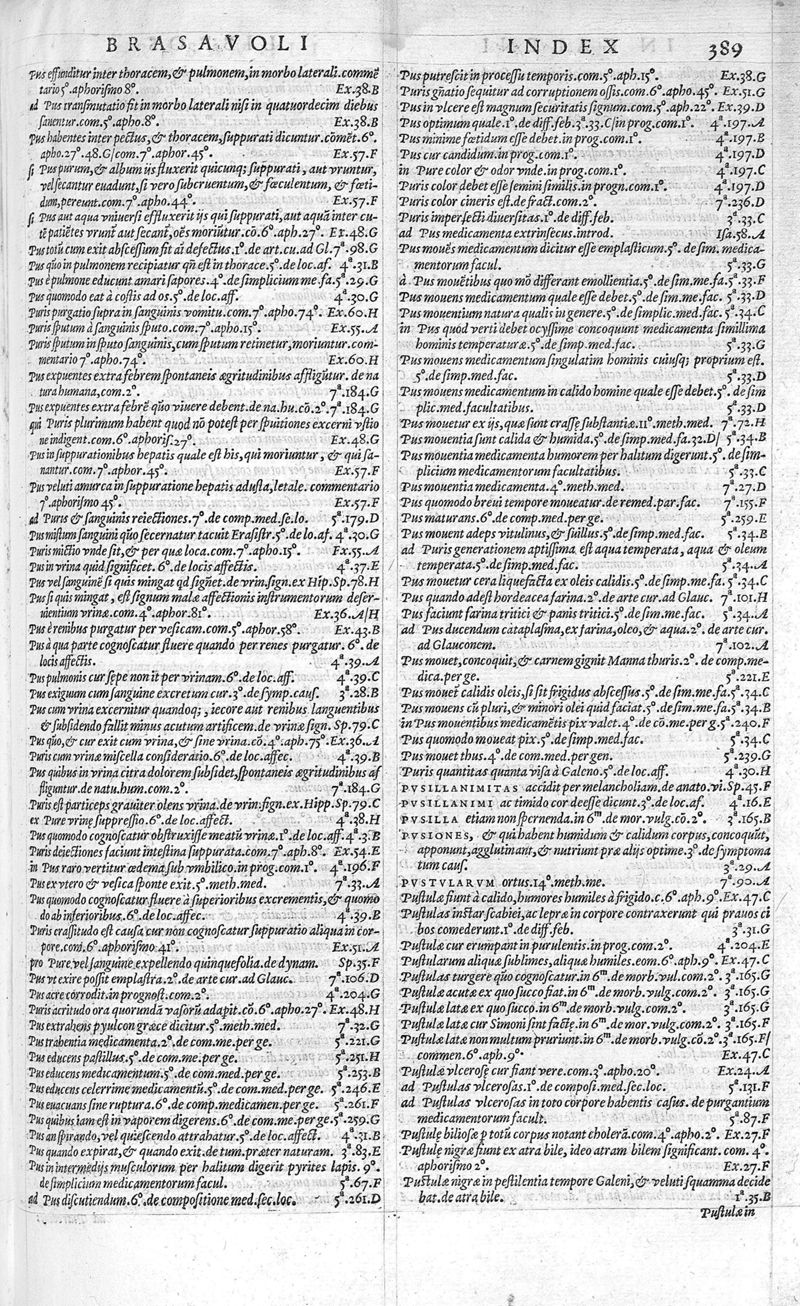 BRASAVOLI
Pus effunditur inter thoracem, & pulmonem, in morbo laterali. commẽ
tario 5º. aphorismo 8º. Ex.38.B
ad Pus transmutatio fit in morbo laterali nisi in quatuordecim diebus
sanentur. com.5º. apho.8º. Ex.38.B
Pus habentes inter pectus, & thoracem, suppurati dicuntur. cõmẽt.6º.
apho.27º.48.G/com.7º.aphor.45º. Ex.57.F
si Pus purum, & album ijs fluxerit quicunq; suppurati, aut vruntur,
vel secantur euadunt, si vero subcruentum, & fœculentum, & fœti-
dum, pereunt. com.7º. apho.44º. Ex.57.F
si Pus aut aqua vniuersi effluxerit ijs qui suppurati, aut aquã inter cu-
tẽ patiẽtes vrunt aut secant, oẽs moriũtur. cõ.6º. aph.27º. Ex.48.G
Pus totũ cum exit abscessum fit ai defectus.1º. de art. cu. ad Gl.7ª.98.G
Pus quo in pulmonem recipiatur qñ est in thorace.5º. de loc. af. 4ª.31.B
Pus è pulmone educunt amari sapores.4º. de simplicium me. fa. 5ª.29.G
Pus quomodo eat à costis ad os.5º. de loc. aff. 4ª.30.G
Puris purgatio supra in sanguinis vomitu. com.7º. apho.74º. Ex.60.H
Puris sputum à sanguinis sputo. com.7º. apho.15º. Ex.55.A
Puris sputum in sputo sanguinis, cum sputum retinetur, moriuntur. com-
mentario 7º. apho.74º. Ex.60.H
Pus expuentes extra febrem spontaneis ægritudinibus affligũtur. de na
tura humana, com.2º. 7ª.184.G
Pus expuentes extra febrẽ quo viuere debent. de na. hu. cõ.2º. 7ª.184.G
qui Puris plurimum habent quod nõ potest per spuitiones excerni vstio
ne indigent. com.6º. aphoris.27º. Ex.48.G
Pus in suppurationibus hepatis quale est his, qui moriuntur, & qui sa-
nantur. com.7º. aphor.45º. Ex.57.F
Pus veluti amurca in suppuratione hepatis adusta, letale. commentario
7º. aphorismo 45º. Ex.57.F
ad Puris & sanguinis reiectiones.7º. de comp. med. se. lo. 5ª.179.D
Pus mistum sanguini quo secernatur tacuit Erasistr.5º. de lo. af. 4ª.30.G
Puris mictio vnde fit, & per quæ loca. com.7º. apho.15º. Ex.55.A
Pus in vrina quid significet.6º. de locis affectis. 4ª.37.E
Pus vel sanguinẽ si quis mingat qd signet. de vrin. sign. ex Hip. Sp.78.H
Pus si quis mingat, est signum malæ affectionis instrumentorum deser-
uientium vrinæ. com.4º. aphor.81º. Ex.36.A/H
Pus è renibus purgatur per vesicam. com.5º. aphor.58º. Ex.43.B
Pus à qua parte cognoscatur fluere quando per renes purgatur.6º. de
locis affectis. 4ª.39.A
Pus pulmonis cur sepe non it per vrinam.6º. de loc. aff. 4ª.39.C
Pus exiguum cum sanguine excretum cur.3º. de symp. caus. 3ª.28.B
Pus cum vrina excernitur quandoq;, iecore aut renibus languentibus
& subsidendo fallit minus acutum artificem. de vrinæ sign. Sp.79.C
Pus quo, & cur exit cum vrina, & sine vrina. cõ.4º. aph.75º. Ex.36.A
Puris cum vrina miscella consideratio.6º. de loc. affec. 4ª.39.B
Pus quibus in vrina citra dolorem subsidet, spontaneis ægritudinibus af
fliguntur. de natu. hum. com.2º. 7ª.184.G
Puris est particeps grauiter olens vrina. de vrin. sign. ex Hipp. Sp.79.C
ex Pure vrinę suppressio.6º. de loc. affect. 4ª.38.H
Pus quomodo cognoscatur obstruxisse meatũ vrinæ.1º. de loc. aff. 4ª.3.B
Puris deiectiones faciunt intestina suppurata. com.7º. aph.8º. Ex.54.E
in Pus raro vertitur œdema sub vmbilico. in prog. com.1º. 4ª.196.F
Pus ex vtero & vesica sponte exit.5º. meth. med. 7ª.33.A
Pus quomodo cognoscatur fluere à superioribus excrementis, & quomo
do ab inferioribus.6º. de loc. affec. 4ª.39.B
Puris crassitudo est causa cur non cognoscatur suppuratio aliqua in cor-
pore. com.6º. aphorismo 41º. Ex.51.A
pro Pure vel sanguine expellendo quinquefolia. de dynam. Sp.35.F
Pus vt exire possit emplastra.2º. de arte cur. ad Glauc. 7ª.106.D
Pus acre corrodit. in prognost. com.2º. 4ª.204.G
Puris acritudo ora quorundã vasorũ adapit. cõ.6º. apho.27º. Ex.48.H
Pus extrahens pyulcon græce dicitur.5º. meth. med. 7ª.32.G
Pus trahentia medicamenta.2º. de com. me. per ge. 5ª.221.G
Pus educens pastillus.5º. de com. me. per ge. 5ª.251.H
Pus educens medicamentum.5º. de com. med. per ge. 5ª.253.B
Pus educens celerrime medicamentũ.5º. de com. med. per ge. 5ª.246.E
Pus euacuans sine ruptura.6º. de comp. medicamen. per ge. 5ª.261.F
Pus quibus iam est in vaporem digerens.6º. de com. me. per ge. 5ª.259.G
Pus an spirando, vel quiescendo attrahatur.5º. de loc. affect. 4ª.31.B
Pus quando expirat, & quando exit. de tum. præter naturam. 3ª.83.E
Pus in intermedijs musculorum per halitum digerit pyrites lapis.9º.
de simplicium medicamentorum facul. 5ª.67.F
ad Pus discutiendum.6º. de compositione med. sec. loc. 5ª.261.D
INDEX 389
Pus putrescit in processu temporis. com.5º. aph.15º. Ex.38.G
Puris gñatio sequitur ad corruptionem ossis. com.6º. apho.45º. Ex.51.G
Pus in vlcere est magnum securitatis signum. com.5º. aph.22º. Ex.39.D
Pus optimum quale.1º. de diff. feb.3ª.33.C/in prog. com.1º. 4ª.197.A
Pus minime fœtidum esse debet. in prog. com.1º. 4ª.197.B
Pus cur candidum. in prog. com.1º. 4ª.197.D
in Pure color & odor vnde. in prog. com.1º. 4ª.197.C
Puris color debet esse semini similis. in progn. com.1º. 4ª.197.D
Puris color cineris est. de fract. com.2º. 7ª.236.D
Puris imperfecti diuersitas.1º. de diff. feb. 3ª.33.C
ad Pus medicamenta extrinsecus. introd. Isa.58.A
Pus mouẽs medicamentum dicitur esse emplasticum.5º. de sim. medica-
mentorum facul. 5ª.33.G
à Pus mouẽtibus quo mõ differant emollientia.5º. de sim. me. fa. 5ª.33.F
Pus mouens medicamentum quale esse debet.5º. de sim. me. fac. 5ª.33.D
Pus mouentium natura qualis in genere.5º. de simplic. med. fac. 5ª.34.C
in Pus quod verti debet ocyssime concoquunt medicamenta simillima
hominis temperaturæ.5º. de simp. med. fac. 5ª.33.G
Pus mouens medicamentum singulatim hominis cuiusq; proprium est.
5º. de simp. med. fac. 5ª.33.D
Pus mouens medicamentum in calido homine quale esse debet.5º. de sim
plic. med. facultatibus. 5ª.33.D
Pus mouetur ex ijs, quæ sunt crassę substantiæ.11º. meth. med. 7ª.72.H
Pus mouentia sunt calida & humida.5º. de simp. med. fa.32.D/ 5ª.34.B
Pus mouentia medicamenta humorem per halitum digerunt.5º. de sim-
plicium medicamentorum facultatibus. 5ª.33.C
Pus mouentia medicamenta.4º. meth. med. 7ª.27.D
Pus quomodo breui tempore moueatur. de remed. par. fac. 7ª.155.F
Pus maturans.6º. de comp. med. per ge. 5ª.259.E
Pus mouent adeps vitulinus, & suillus.5º. de simp. med. fac. 5ª.34.B
ad Puris generationem aptissima est aqua temperata, aqua & oleum
temperata.5º. de simp. med. fac. 5ª.34.A
Pus mouetur cera liquefacta ex oleis calidis.5º. de simp. me. fa. 5ª.34.C
Pus quando adest hordeacea farina.2º. de arte cur. ad Glauc. 7ª.101.H
Pus faciunt farina tritici & panis tritici.5º. de sim. me. fac. 5ª.34.A
ad Pus ducendum cataplasma, ex farina, oleo, & aqua.2º. de arte cur.
ad Glauconem. 7ª.102.A
Pus mouet, concoquit, & carnem gignit Manna thuris.2º. de comp. me-
dica. per ge. 5ª.221.E
Pus mouet calidis oleis, si sit frigidus abscessus.5º. de sim. me. fa. 5ª.34.C
Pus mouens cũ pluri, & minori olei quid faciat.5º. de sim. me. fa. 5ª.34.B
in Pus mouentibus medicamẽtis pix valet.4º. de cõ. me. per g. 5ª.240.F
Pus quomodo moueat pix.5º. de simp. med. fac. 5ª.34.C
Pus mouet thus.4º. de com. med. per gen. 5ª.239.G
Puris quantitas quanta visa à Galeno.5º. de loc. aff. 4ª.30.H
PVSILLANIMITAS accidit per melancholiam. de anato. vi. Sp.45.F
PVSILLANIMI ac timido cor deesse dicunt.3º. de loc. af. 4ª.16.E
PVSILLA etiam non spernenda. in 6m. de mor. vulg. cõ.2º. 3ª.165.B
PVSIONES, & qui habent humidum & calidum corpus, concoquũt,
apponunt, agglutinant, & nutriunt præ alijs optime.3º. de symptoma
tum caus. 3ª.29.A
PVSTVLARVM ortus.14º. meth. me. 7ª.90.A
Pustulæ fiunt à calido, humores humiles à frigido. c.6º. aph.9º. Ex.47.C
Pustulas instar scabiei, ac lepræ in corpore contraxerunt qui prauos ci
bos comederunt.1º. de diff. feb. 3ª.31.G
Pustulæ cur erumpant in purulentis. in prog. com.2º. 4ª.204.E
Pustularum aliquæ sublimes, aliquæ humiles. eom.6º. aph.9º. Ex.47.C
Pustulas turgere quo cognoscatur. in 6m. de morb. vul. com.2º. 3ª.165.G
Pustulæ acutæ ex quo succo fiat. in 6m. de morb. vulg. com.2º. 3ª.165.G
Pustulæ latæ ex quo succo. in 6m. de morb. vulg. com.2º. 3ª.165.G
Pustulæ latæ cur Simoni sint factę. in 6m. de mor. vulg. com.2º. 3ª.165.F
Pustulæ latæ non multum pruriunt. in 6m. de morb. vulg. cõ.2º. 3ª.165.F/
commen.6º. aph.9º. Ex.47.C
Pustulæ vlcerosę cur fiant vere. com.3º. apho.20º. Ex.24.A
ad Pustulas vlcerosas.1º. de composi. med. sec. loc. 5ª.131.F
ad Pustulas vlcerosas in toto corpore habentis casus. de purgantium
medicamentorum facult. 5ª.87.F
Pustulę biliosæ p totũ corpus notant cholerã. com.4º. apho.2º. Ex.27.F
Pustulę nigræ fiunt ex atra bile, ideo atram bilem significant. com.4º.
aphorismo 2º. Ex.27.F
Pustulæ nigræ in pestilentia tempore Galeni, & veluti squamma decide
bat. de atra bile. 1ª.35.B
Pustulæ in